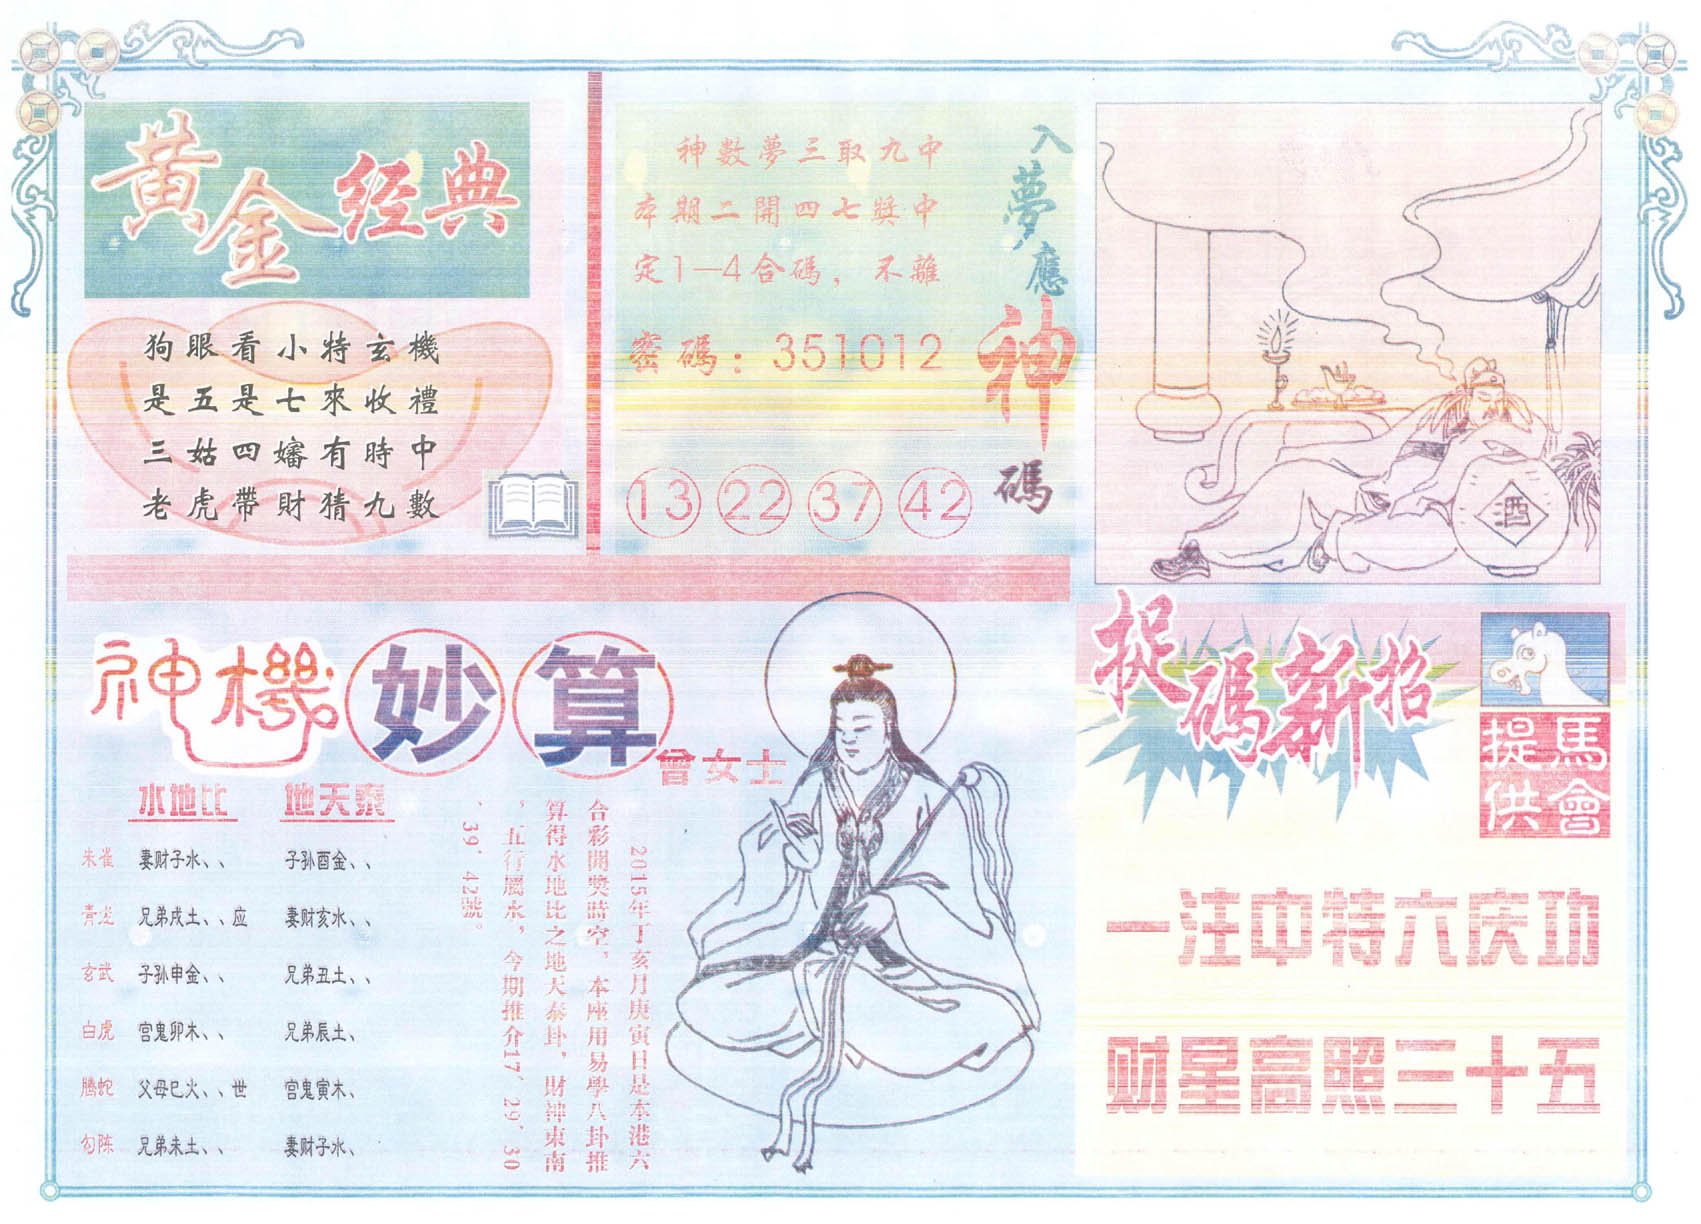 黃金经典
狗眼看小特玄機
是五是七來收禮
三姑四嬸有時中
老虎帶財猜九數
入夢應神碼
神數夢三取九中
本期二開四七獎中
定1—4合碼，不離
密碼：351012
13 22 37 42
酒
神機妙算
曾女士
水地比 地天泰
朱雀 妻财子水、、 子孙酉金、、
青龙 兄弟戌土、、应 妻财亥水、、
玄武 子孙申金、、 兄弟丑土、、
白虎 官鬼卯木、、 兄弟辰土、
腾蛇 父母巳火、、世 官鬼寅木、
勾陈 兄弟未土、、 妻财子水、
2015年丁亥月庚寅日是本港六
合彩開獎時空，本座用易學八卦推
算得水地比之地天泰卦，財神東南
，五行屬水，今期推介17、29、30
、39、42號。
捉碼新招
馬會提供
一注中特六庆功
财星高照三十五